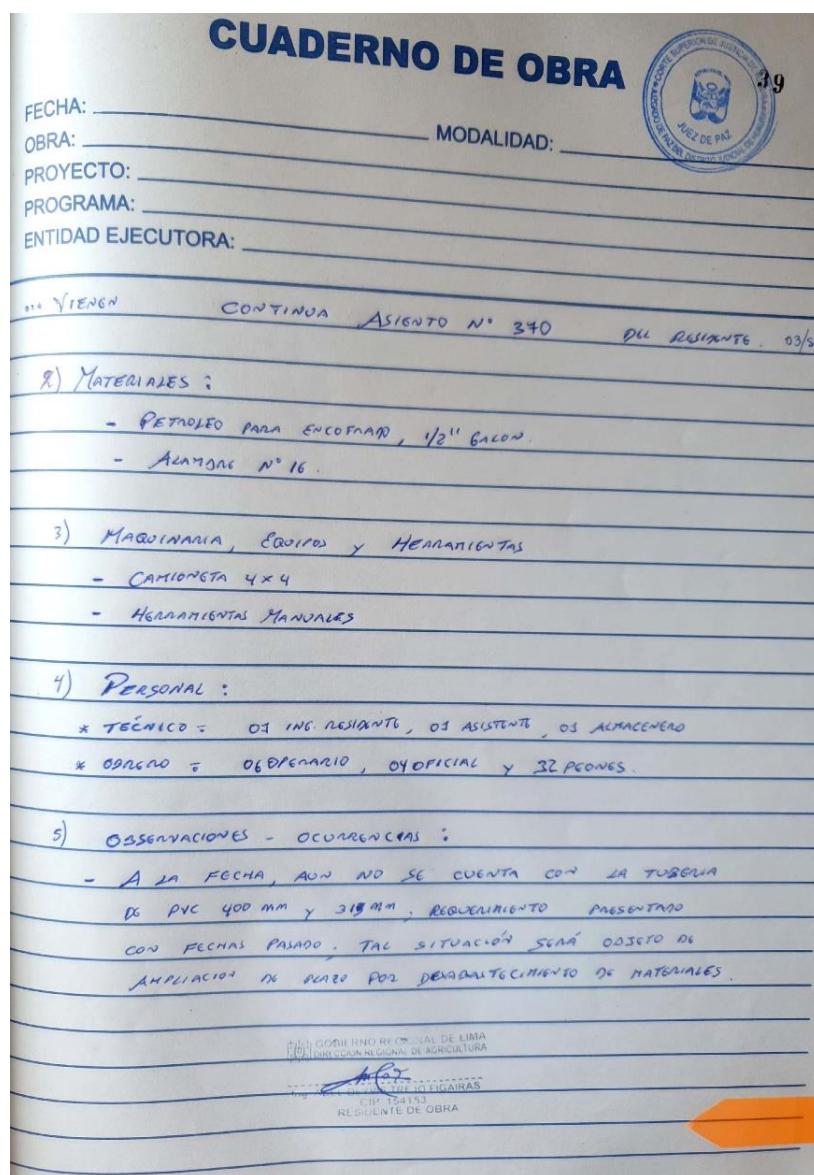 CUADERNO DE OBRA
39
CORTE SUPERIOR DE JUSTICIA DE
JUEZ DE PAZ
FECHA:
OBRA: MODALIDAD:
PROYECTO:
PROGRAMA:
ENTIDAD EJECUTORA:
... VIENEN CONTINUA ASIENTO N° 370 DEL RESIDENTE. 03/
2) MATERIALES :
- PETROLEO PARA ENCOFRADO, 1/2" GALON.
- ALAMBRE N° 16.
3) MAQUINARIA, EQUIPOS y HERRAMIENTAS
- CAMIONETA 4x4
- HERRAMIENTAS MANUALES
4) PERSONAL :
* TÉCNICO = 01 ING. RESIDENTE, 01 ASISTENTE, 01 ALMACENERO
* OBRERO = 06 OPERARIO, 04 OFICIAL y 32 PEONES.
5) OBSERVACIONES - OCURRENCIAS :
- A LA FECHA, AUN NO SE CUENTA CON LA TUBERIA
DE PVC 400 mm y 315 mm, REQUERIMIENTO PRESENTADO
CON FECHAS PASADO. TAL SITUACIÓN SERÁ OBJETO DE
AMPLIACION DE PLAZO POR DESABASTECIMIENTO DE MATERIALES.
GOBIERNO REGIONAL DE LIMA
DIRECCION REGIONAL DE AGRICULTURA
Ing. TREJO FIGAIRAS
CIP. 154153
RESIDENTE DE OBRA